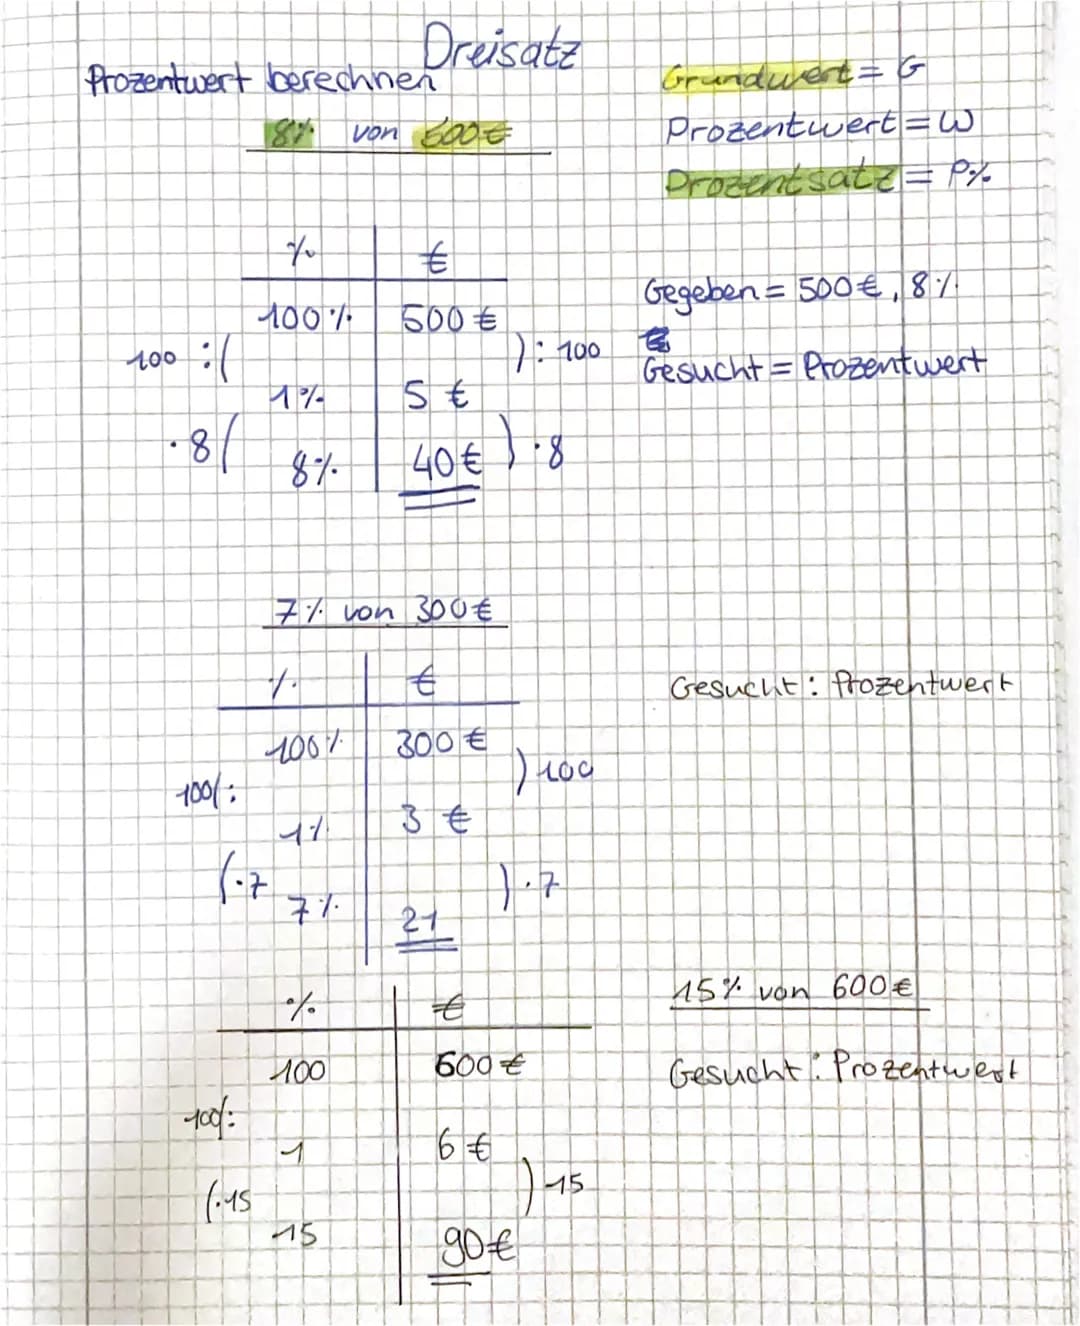 Dreisatz
Prozentwert berechnen
8% von 500€
Grundwert = G
Prozentwert = W
Prozentsatz = P%
% €
100% 500€
100 :( ) : 100
1% 5 €
·8( ) ·8
8% 40€
Gegeben = 500€, 8%
Gesucht = Prozentwert
7% von 300€
% €
Gesucht: Prozentwert
100% 300€
100(: ) 100
1% 3 €
(·7 ) ·7
7% 21
15% von 600€
% €
Gesucht: Prozentwert
100 600€
100(:
1 6€
(·15 ) 15
15 90€